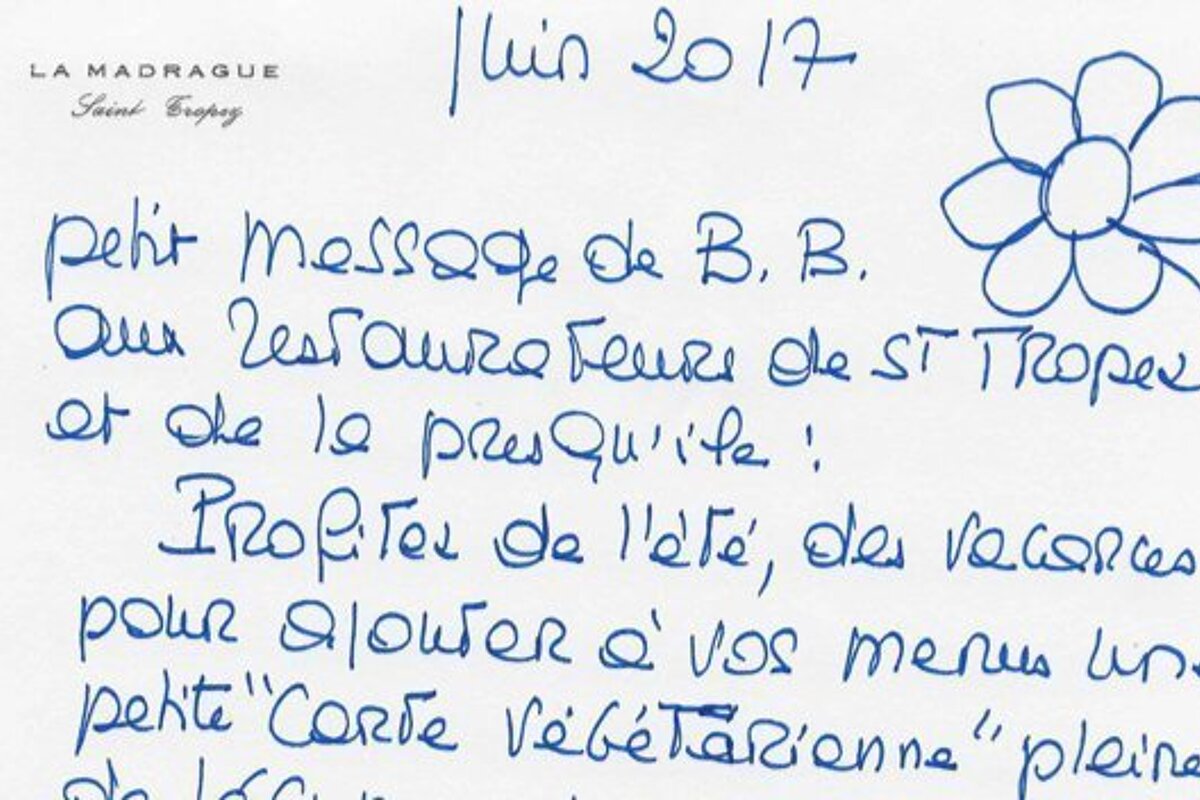 Juin 2017
LA MADRAGUE
Saint Tropez
petit message de B. B.
aux restaurateurs de ST Tropez
et de la presqu'île :
Profitez de l'été, des vacances
pour ajouter à vos menus une
petite "Carte végétarienne" pleine
de